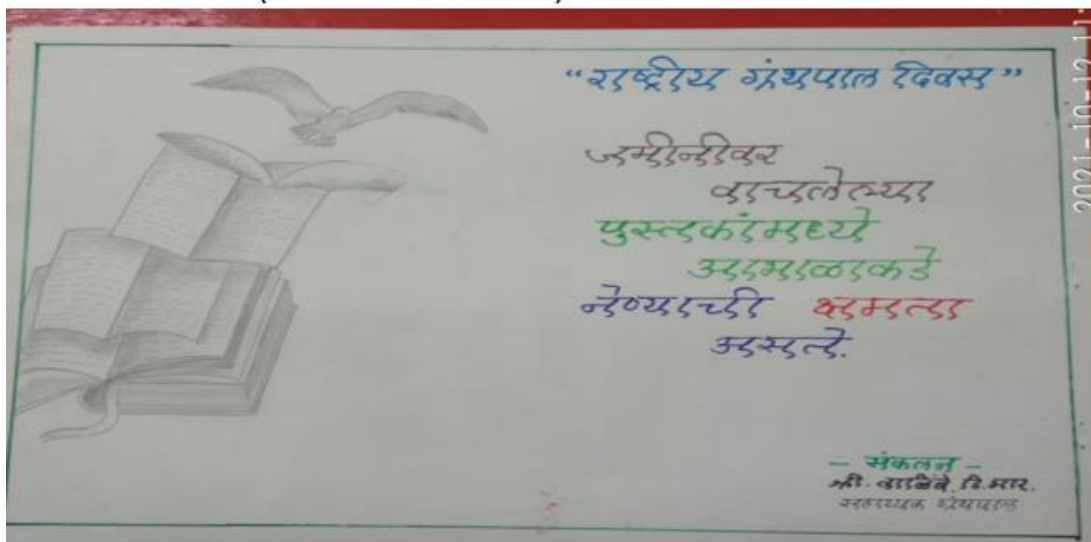 “राष्ट्रीय ग्रंथपाल दिवस”
जमीनीवर
वाचलेल्या
पुस्तकांमध्ये
आभाळाकडे
नेण्याची क्षमता
असते.
- संकलन -
श्री. वाळिंबे. डि. आर.
सहाय्यक ग्रंथपाल